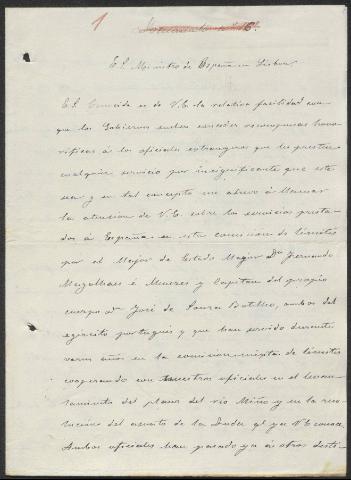 1
Documento nº 16.
El Ministro de España en Lisboa
E.S. Conocida es de V.E. la relativa facilidad con
que los Gobiernos suelen conceder recompensas hono
rificas á los oficiales extrangeros que les prestan
cualquier servicio por insignificante que este
sea y en tal concepto me atrevo á llamar
la atencion de V.E. sobre los servicios presta
dos á España en esta comision de límites
por el Mayor de Estado Mayor Dn Fernando
Magalhaes é Menezes y Capitan del propio
cuerpo dn José de Souza Botelho, ambos del
egército portugués y que han servido durante
varios años en la comision mixta de límites
cooperando con nuestros oficiales en el levan
tamiento del plano del rio Miño y en la reso
lucion del asunto de la Insua qe ya V.E. conoce.
Ambos oficiales han pasado ya á otros desti-